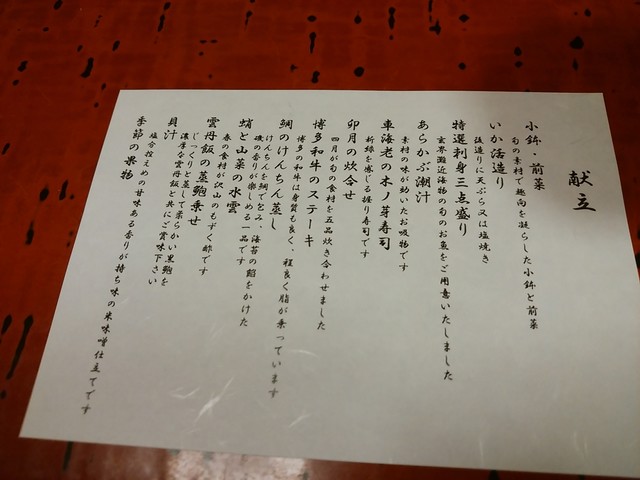 献立
小鉢・前菜
旬の素材で趣向を凝らした小鉢と前菜
いか活造り
後造りに天ぷら又は塩焼き
特選刺身三点盛り
玄界灘近海物の旬のお魚をご用意いたしました
あらかぶ潮汁
素材の味が効いたお吸物です
車海老の木ノ芽寿司
新緑を感じる握り寿司です
卯月の炊合せ
四月が旬の食材を五品炊き合わせました
博多和牛のステーキ
博多の和牛は身質も良く、程良く脂が乗っています
鯛のけんちん蒸し
けんちんを鯛で包み、海苔の餡をかけた
磯の香りが楽しめる一品です
蛸と山菜の水雲
春の食材が沢山のもずく酢です
雲丹飯の蒸鮑乗せ
じっくりと蒸して柔らかい黒鮑を
濃厚な雲丹飯と共にご賞味下さい
貝汁
塩分控えめの甘味ある香りが持ち味の米味噌仕立てです
季節の果物